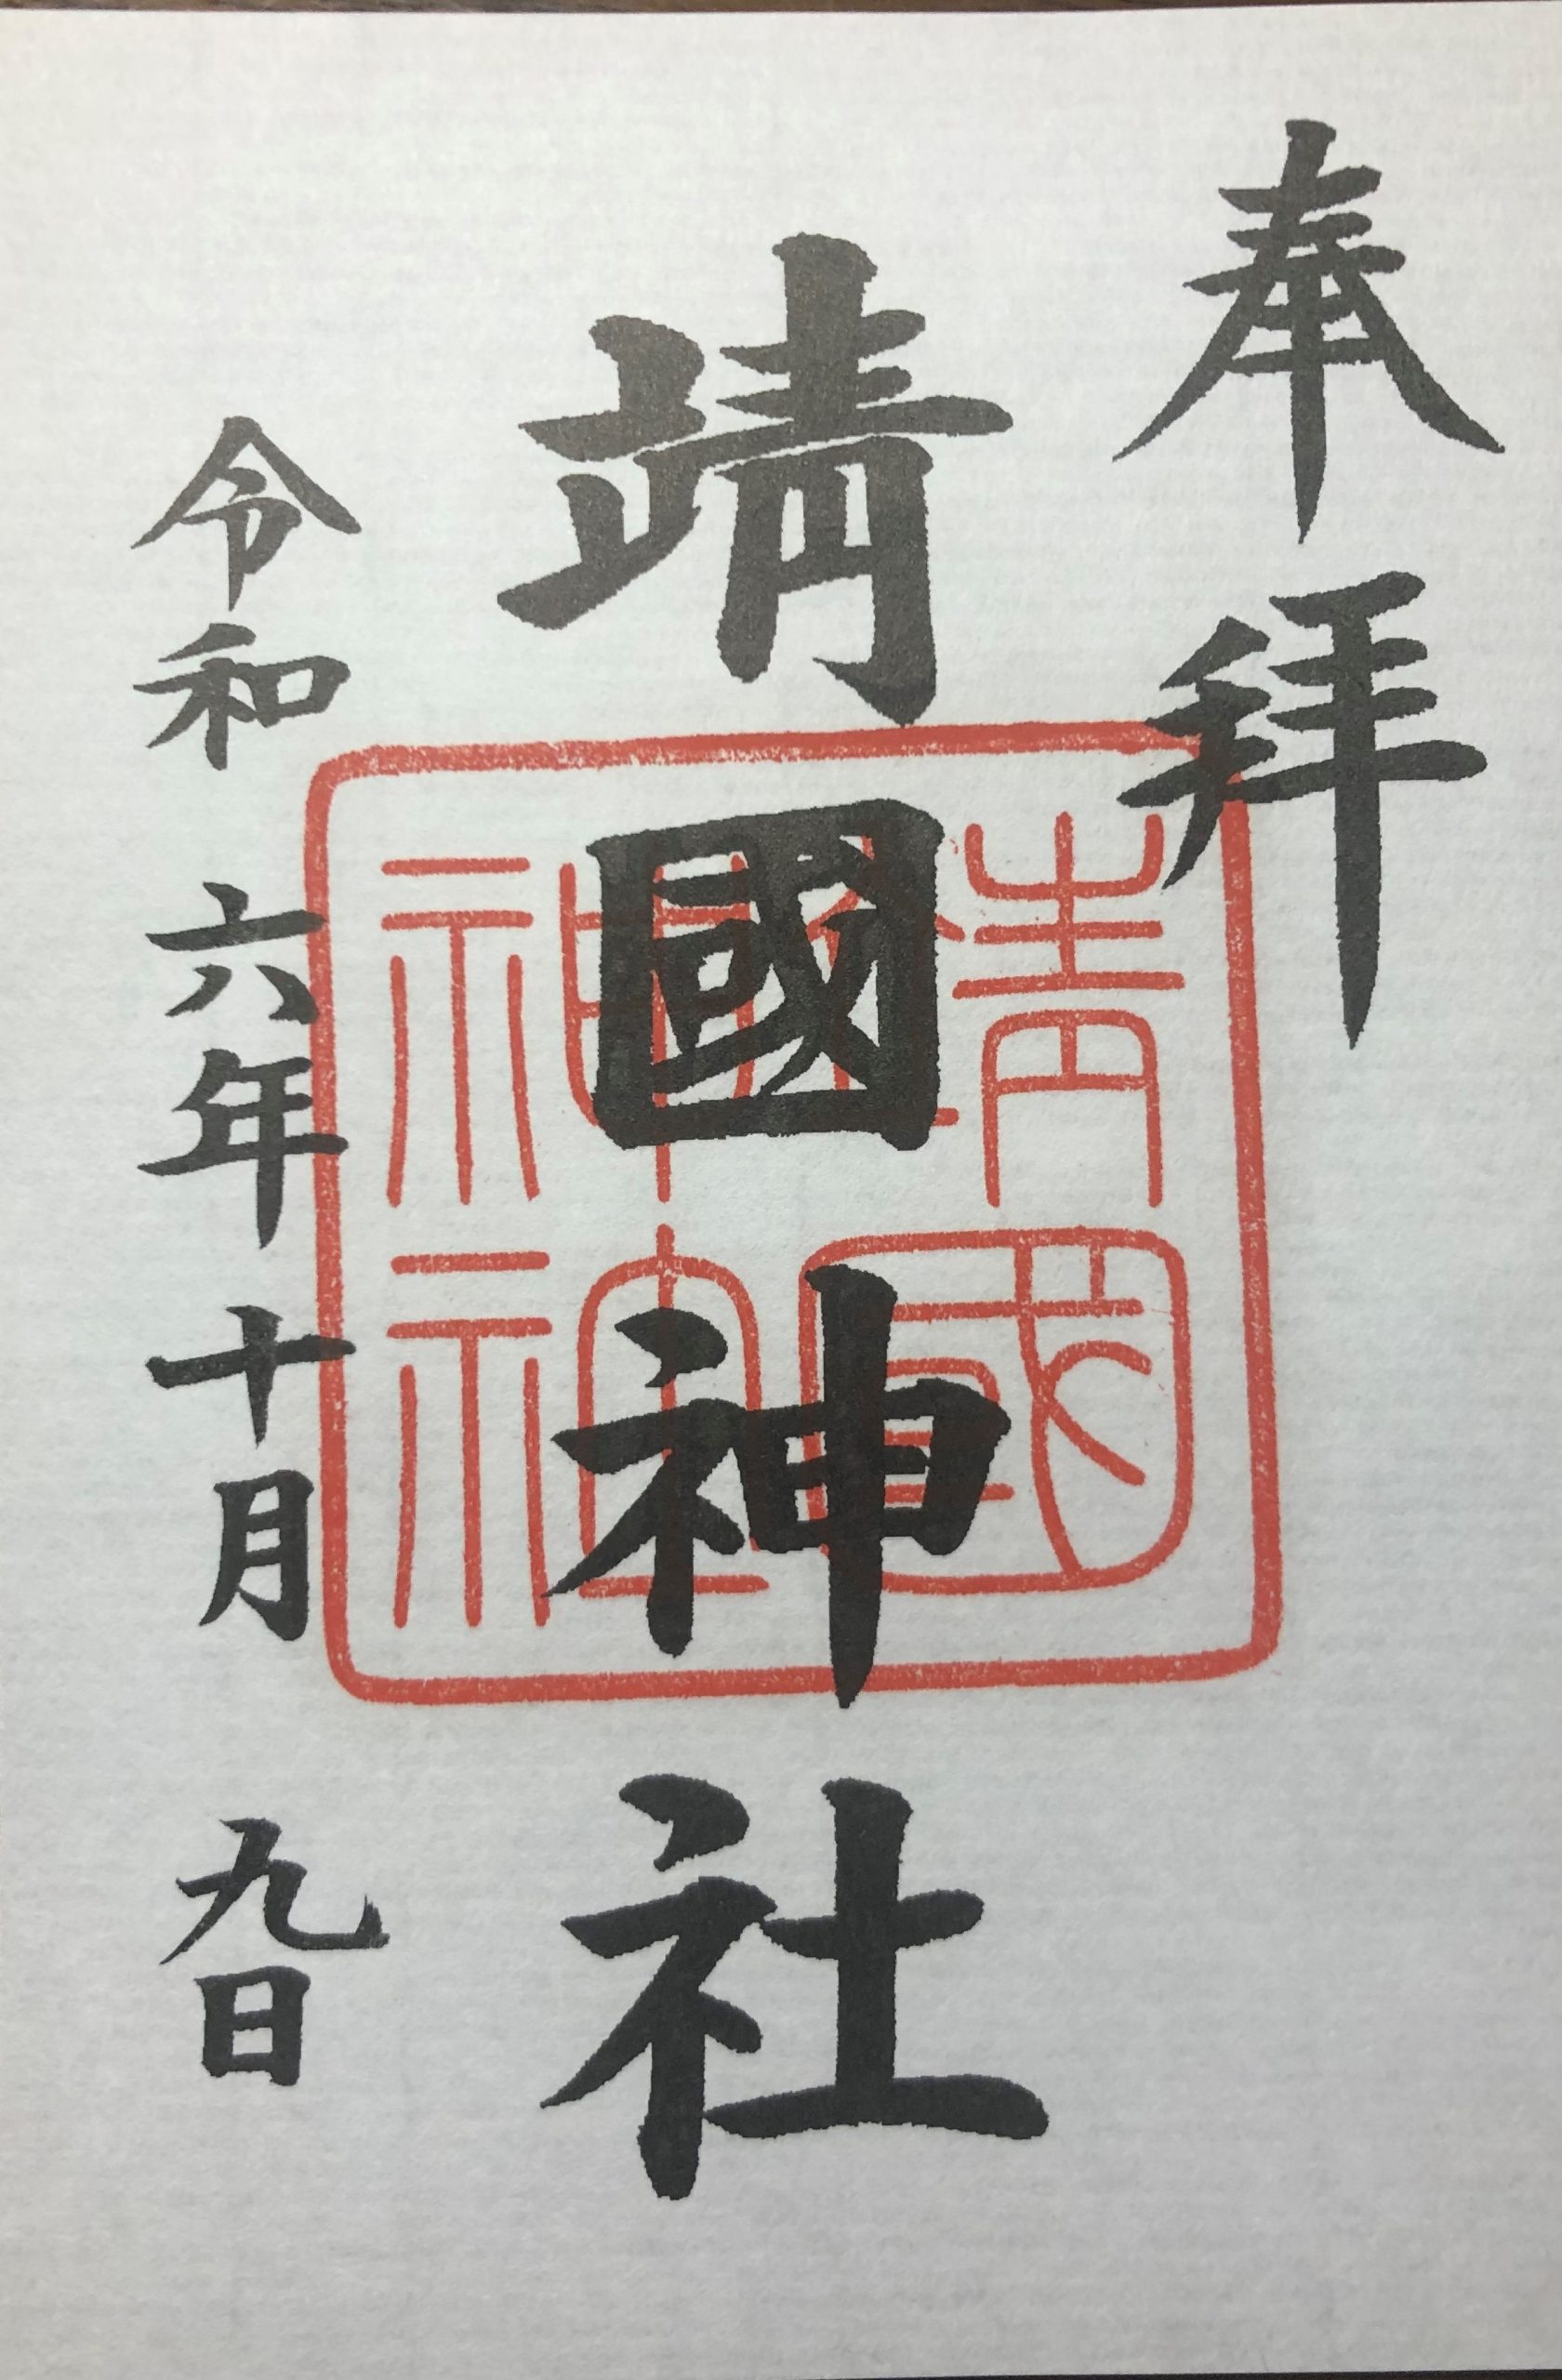 奉拝
靖國神社
靖國神社
令和六年十月九日